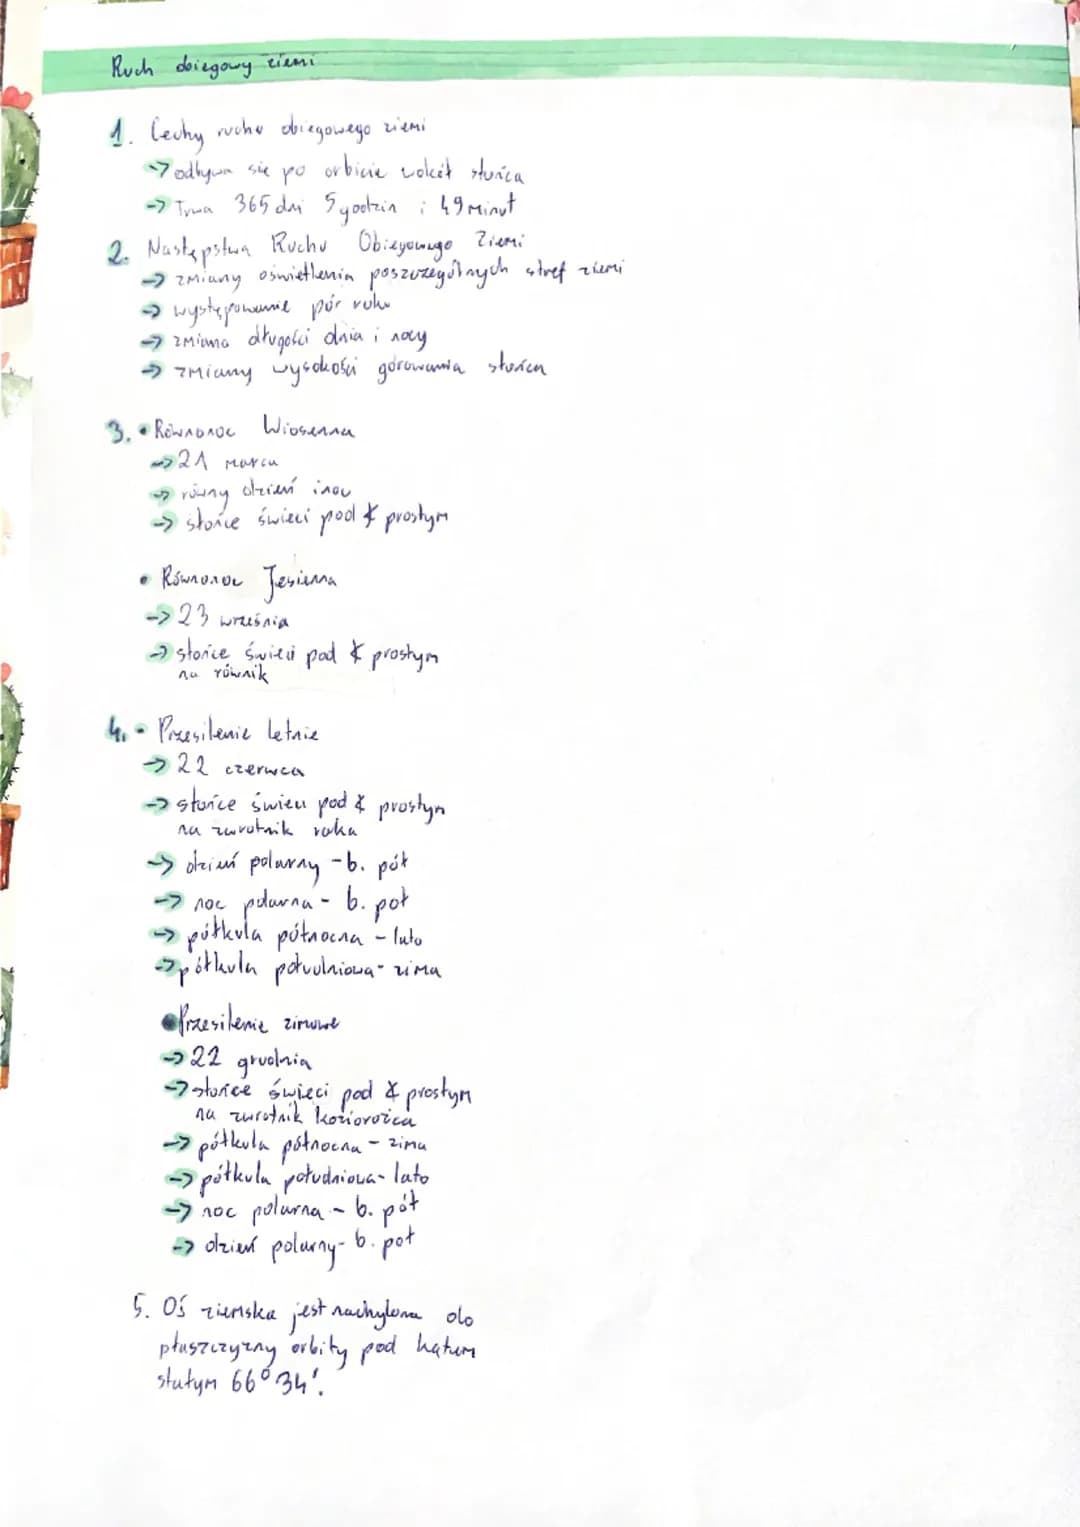 Ruch obiegowy ziemi
1. Cechy ruchu obiegowego ziemi
-> odbywa się po orbicie wokół słońca
-> Trwa 365 dni 5 godzin i 49 minut
2. Następstwa Ruchu Obiegowego Ziemi
-> zmiany oświetlenia poszczególnych stref ziemi
-> występowanie pór roku
-> zmiana długości dnia i nocy
-> zmiany wysokości górowania słońca
3. • Równonoc Wiosenna
-> 21 marca
-> równy dzień i noc
-> słońce świeci pod ∢ prostym
• Równonoc Jesienna
-> 23 września
-> słońce świeci pod ∢ prostym
na równik
4. • Przesilenie letnie
-> 22 czerwca
-> słońce świeci pod ∢ prostym
na zwrotnik raka
-> dzień polarny - b. pół
-> noc polarna - b. poł
-> półkula północna - lato
-> półkula południowa - zima
• Przesilenie zimowe
-> 22 grudnia
-> słońce świeci pod ∢ prostym
na zwrotnik koziorożca
-> półkula północna - zima
-> półkula południowa - lato
-> noc polarna - b. pół
-> dzień polarny - b. poł
5. Oś ziemska jest nachylona do
płaszczyzny orbity pod kątem
stałym 66°34'.